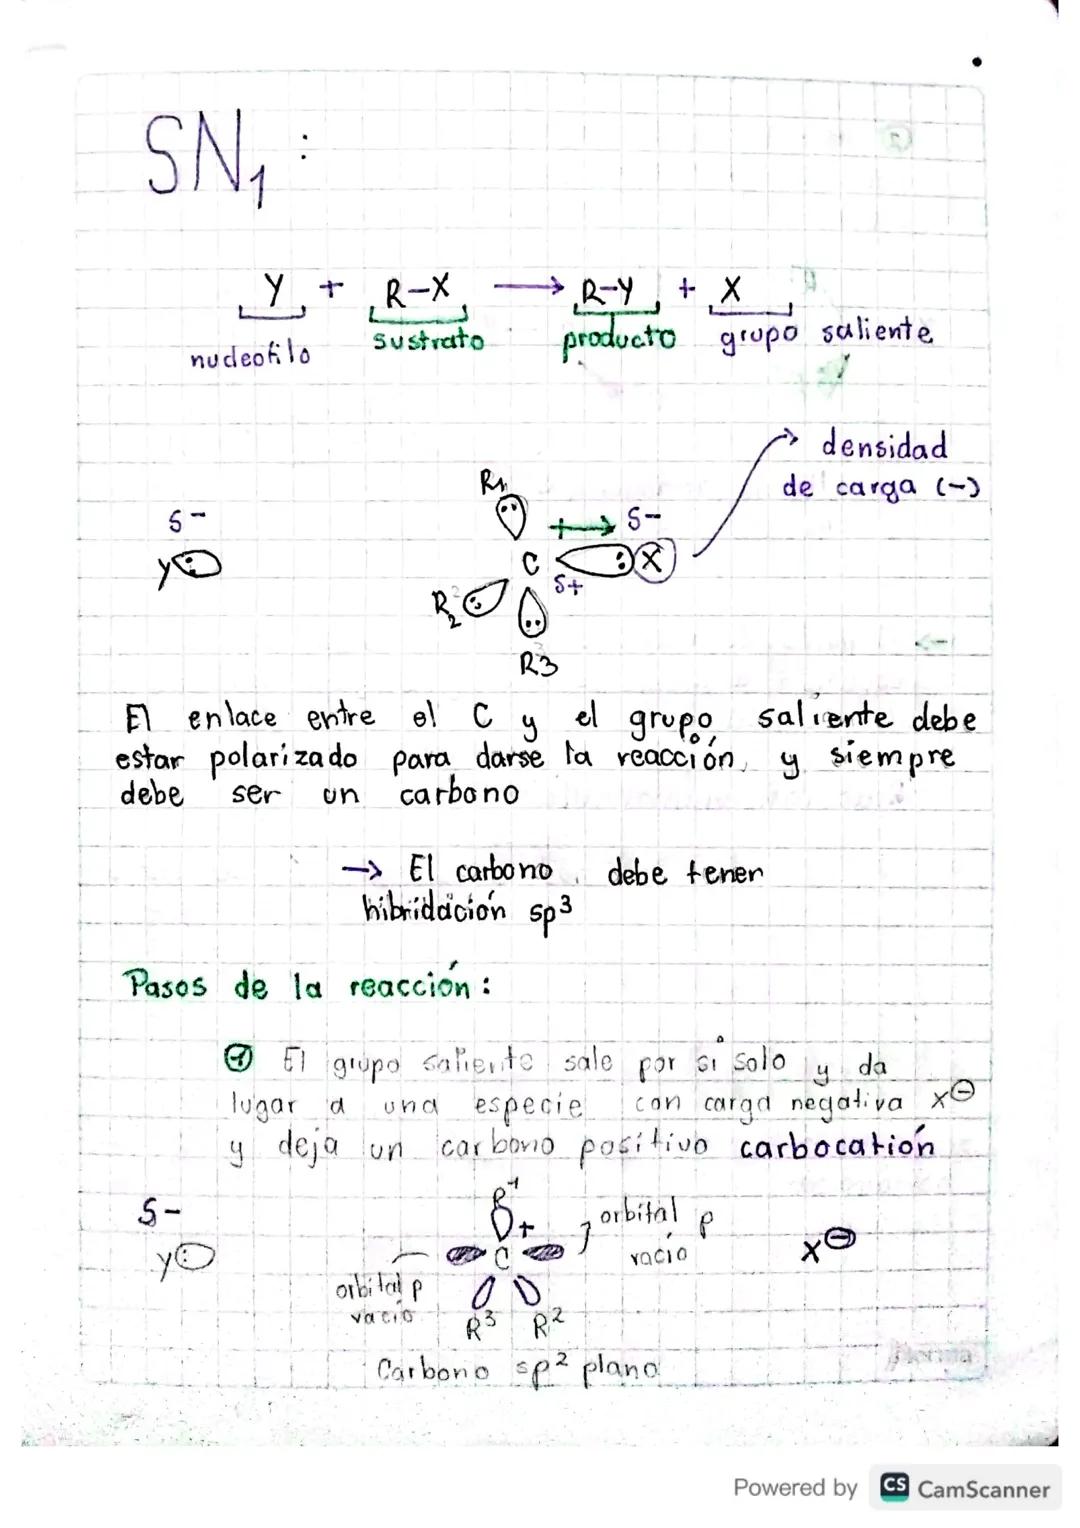 SN₁ :
Y + R-X → R-Y + X
nucleofilo sustrato producto grupo saliente
densidad
de carga (-)
R1
δ- δ-
Y C X
δ+
R2
R3
El enlace entre el C y el grupo saliente debe
estar polarizado para darse la reacción, y siempre
debe ser un carbono
→ El carbono debe tener
hibridación sp³
Pasos de la reacción:
1 El grupo saliente sale por sí solo y da
lugar a una especie con carga negativa X⊖
y deja un carbono positivo carbocatión
δ- R1 orbital p
Y + C vacío X⊖
orbital p
vacío R3 R2
Carbono sp² plano
Norma
Powered by CS CamScanner